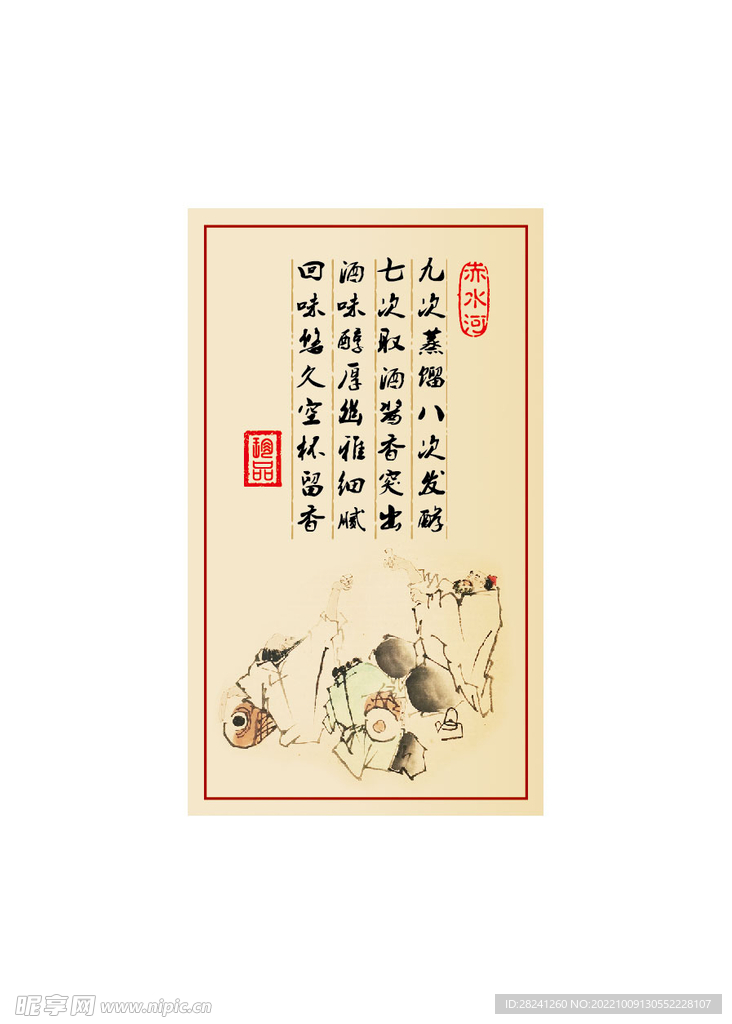 赤水河
九次蒸馏八次发酵
七次取酒酱香突出
酒味醇厚幽雅细腻
回味悠久空杯留香
珍品
昵享网 www.nipic.cn
ID:28241260 NO:20221009130552228107